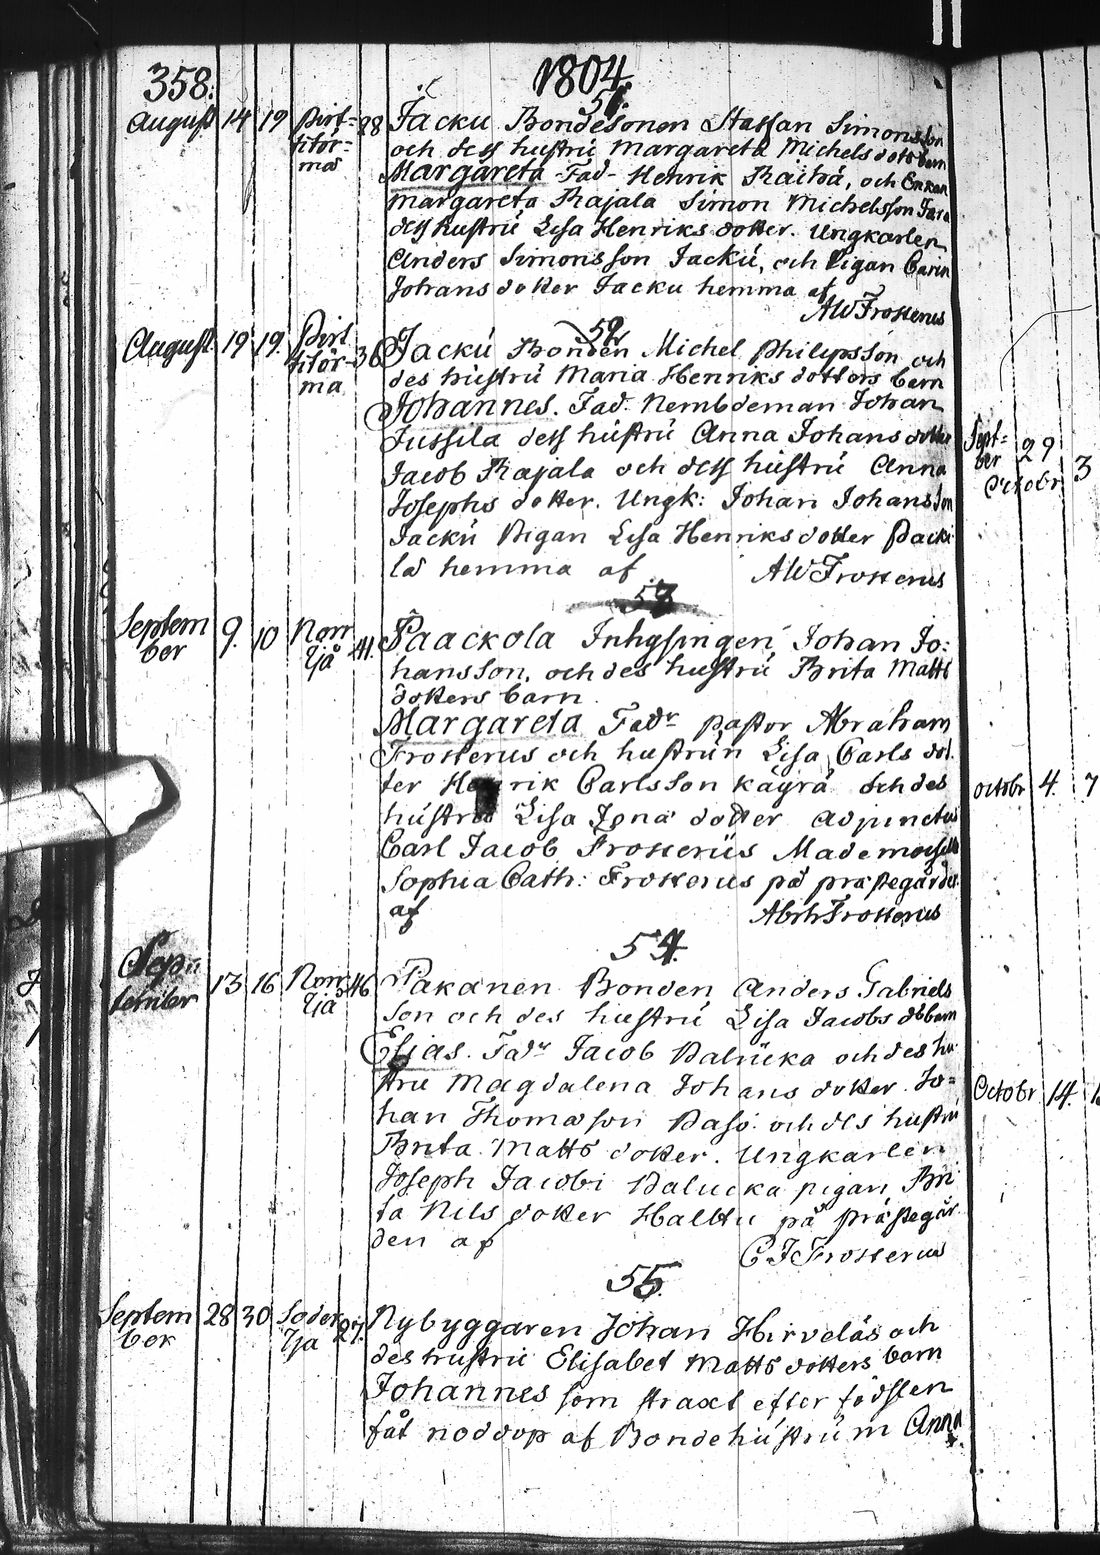 358. 1804.
51.
August 14 19 Pirt= 28 Jacku Bondesonen Staffan Simonsson
titör= och dess hustru Margareta Michelsdots barn
ma Margareta Fad- Henrik Raitva, och Enkan
Margareta Rajala Simon Michelsson
dess hustru Lisa Henriksdotter. Ungkarlen
Anders Simonsson Jacku, och Pigan Carin
Johansdotter Jacku hemma af
AW Frosterus
52
August 19 19. Pirt 36 Jacku Bonden Michel Philipsson och
titör= des hustru Maria Henriksdotters barn
ma Johannes. Fad. Nembdeman Johan
Jussila dess hustru Anna Johansdotter
Jacob Rajala och dess hustru Anna
Josephsdotter. Ungk: Johan Johansson
Jacku Pigan Lisa Henriksdotter Packi
la hemma af AW Frosterus
53
Septem 9. 10 Norr 41. Paackola Inhysingen Johan Jo:
ber Yjå hansson, och des hustru Brita Matts
dotters barn
Margareta Fadr Pastor Abraham
Frosterus och hustrun Lisa Carls dot
ter Henrik Carlsson Kägrä och des
hustru Lisa Jona dotter Adjunctus
Carl Jacob Frosterus Mademoiselle
Sophia Cath: Frosterus på prästegården
af Abrh Frosterus
54.
Sep= 13 16 Norr 46 Pakanen Bonden Anders Gabriels
tember Yjå son och des hustru Lisa Jacobs d. barn
Elias. Fadr Jacob Palucka och des hu
stru Magdalena Johansdotter. Jo=
han Thomasson Paso och des hustru
Brita Matts dotter. Ungkarlen
Joseph Jacobi Palucka pigan Bri
ta Nils dotter Halttu på Prästegår
den af C J Frosterus
55.
Septem 28 30 Söder 27. Nybyggaren Johan Hirveläs och
ber Yjå des hustru Elisabet Matts dotters barn
Johannes som straxt efter födslen
fåt noddop af Bondehustrun Anna
Sept= 29
ber
Octobr 3
octobr 4. 7
Octobr 14.